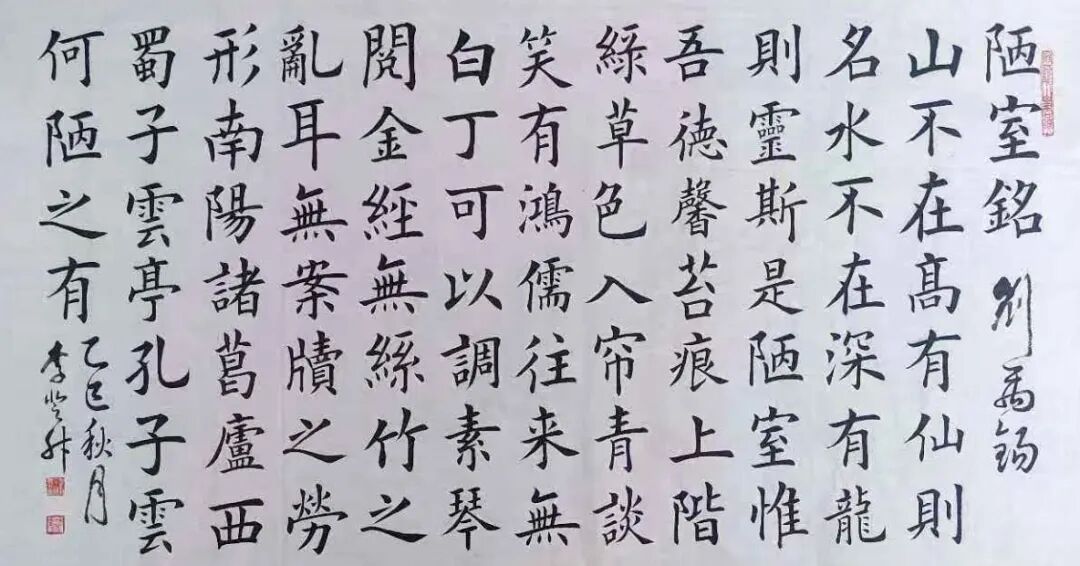 陋室銘 劉禹錫
山不在髙有仙則
名水不在深有龍
則靈斯是陋室惟
吾德馨苔痕上階
綠草色入帘青談
笑有鴻儒往来無
白丁可以調素琴
閱金經無絲竹之
亂耳無案牘之勞
形南陽諸葛廬西
蜀子雲亭孔子雲
何陋之有
乙巳秋月
李